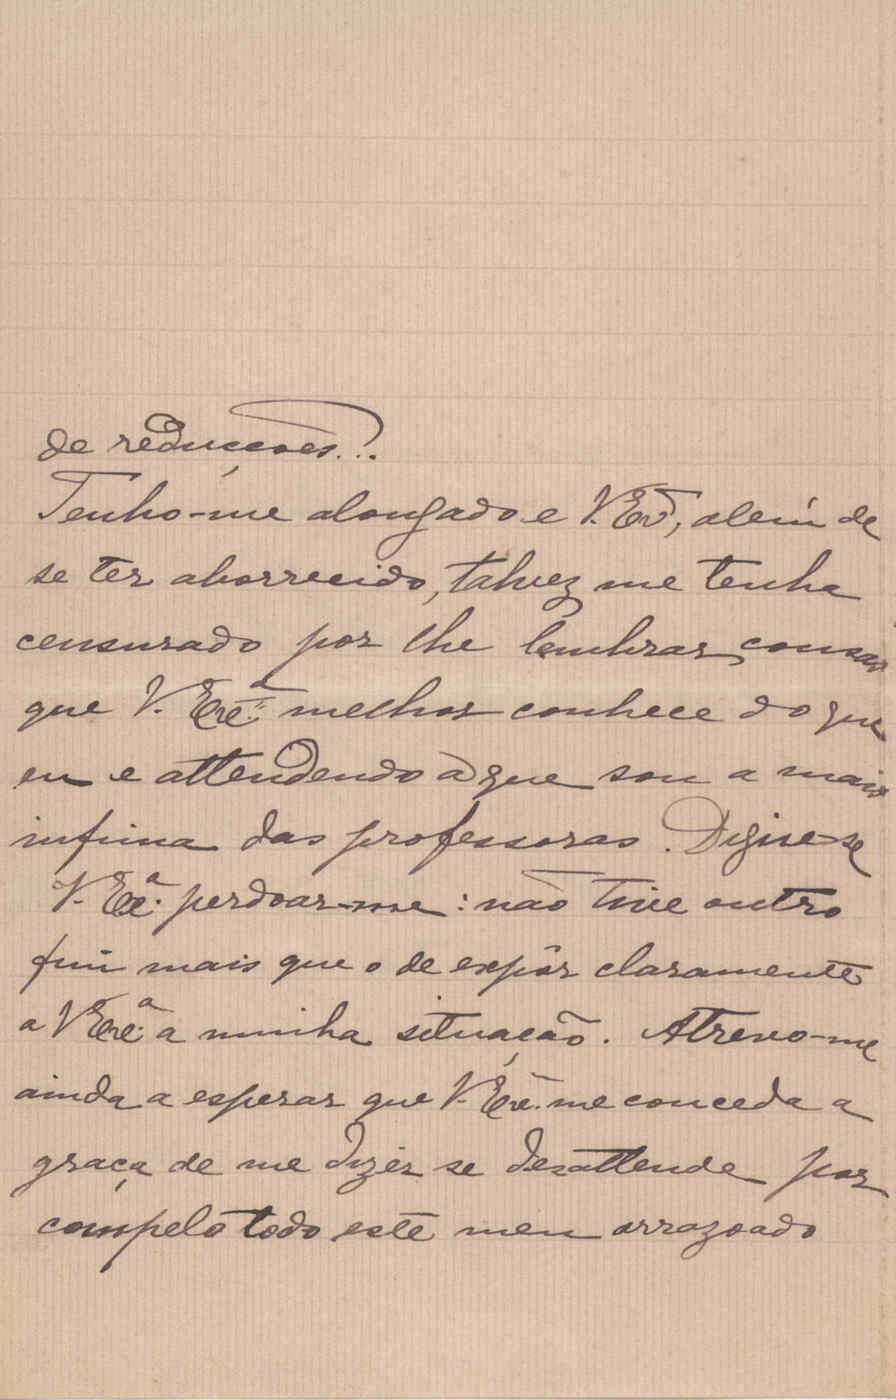 de reducções...
Tenho-me alongado e V. Exª, alem de
se ter aborrecido, talvez me tenha
censurado por lhe lembrar cousas
que V. Exc.ª melhor conhece do que
eu e attendendo a que sou a mais
infima das professoras. Digne-se
V. Exc.ª perdoar-me: não tive outro
fim mais que o de expôr claramente
a V. Exc.ª a minha situação. Atrevo-me
ainda a esperar que V. Exc.ª me conceda a
graça de me dizer se desattende por
completo todo este meu arrazoado